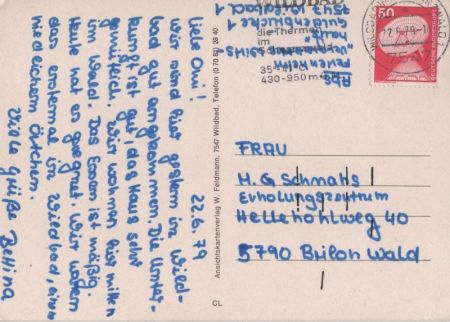 22.6.79
Liebe Omi!
Wir sind hier gestern in Wild-
bad gut angekommen. Die Unter-
kunft ist gut, das Haus sehr
gemütlich. Wir wohnen hier mitten
im Wald. Das Essen ist mäßig.
Heute hat es geregnet. Wir waren
das erstemal in Wildbad, einem
niedlichen Örtchen.
Viele Grüße Bettina
Ansichtskartenverlag W. Feldmann, 7547 Wildbad, Telefon (0 70 81) 28 40
CL
WILDBAD
die Thermen
im
430-950 m
50
Abs
Ferienheim
7547 Wildbad 1
FRAU
M. G Schmahs
Erholungszentrum
Hellehohlweg 40
5790 Brilon Wald